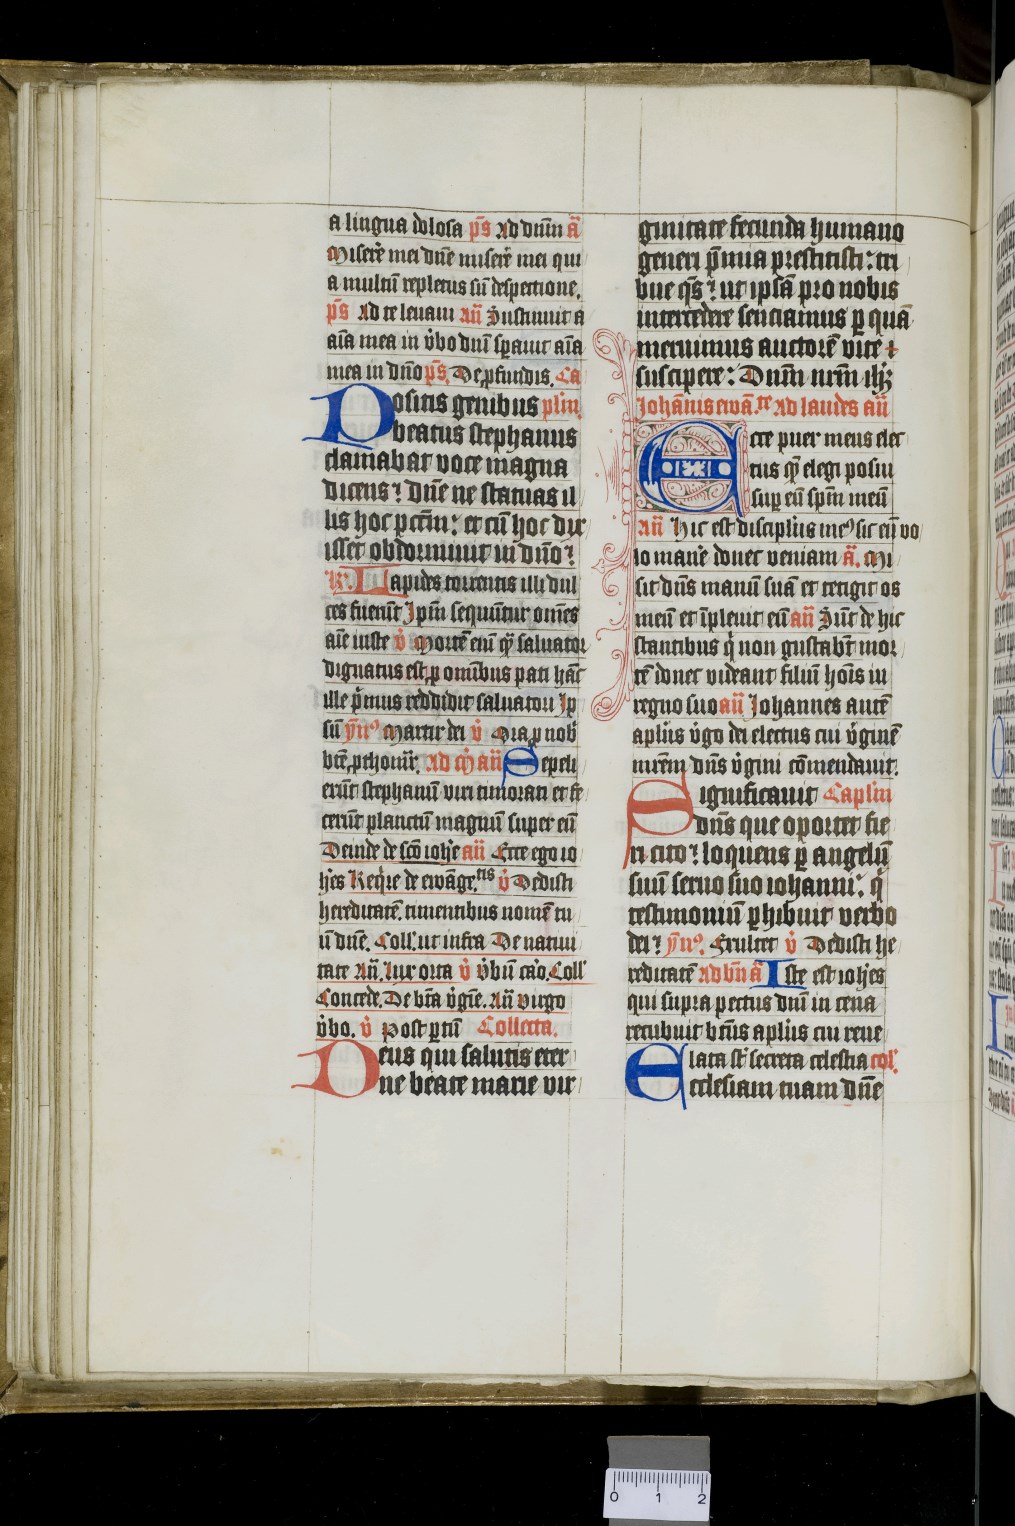 a lingua dolosa p̄s Ad dnm̄ ā
Miserē mei dn̄e miserē mei qui
a multū repletus sū despectione.
p̄s Ad te levavi an̄ Sustinuit a
aīa mea in v̉bo dnī sperauit aīa
mea in dn̄o p̄s. De ꝓfundis. Ca
Positis genibus plm̄.
beatus stephanus
clamabat voce magna
dicens: dn̄e ne statuas il
lis hoc pctm̄: et cū hoc dix
isset obdormiuit in dn̄o:
R̉. Lapides torrentis illi dul
ces fuerūt Ipm̄ sequūntur om̄es
aīe iuste v̉ Mortē enī quā saluator
dignatus est ꝓ omībus pati hāc
ille p̄mus reddidit saluatori Ip
sū ym̉ Martir dei v̉ Ora ꝓ nob̄
bt̄e ꝓthomr̄. Ad m̄ an̄ Sepeli
erūt stephanū viri timorati et fe
cerūt planctum magnū super eū
Deinde de scō ioh̄e an̄ Ecce ego io
h̄es Req̉re de ewāge.tis v̉ Dedisti
hereditatē. timentibus nomē tu
ū dn̄e. Coll̉. ut infra De natiui
tate An̄. lux orta v̉ v̉bū caō. Coll̉
Concede. De bt̄a v̉gīe. An̄ virgo
v̉bo. v̉ Post ꝑtū Collecta.
Deus qui salutis eter
ne beate marie vir
ginitate fecunda humano
generi p̄mia prestitisti: tri
bue qs̄: ut ipsā pro nobis
intercedere senciamus ꝑ quā
meruimus auctorē vite
suscipere: Dnm̄ nrm̄ ih̄
Johānis ewā.te Ad laudes an̄
Ecce puer meus elec
tus quē elegi posui
sup eū spm̄ meū
an̄ Hic est discipl̄us me᷒ sic eū vo
lo manē donec veniam ā. Mi
sit dn̄s manū suā et tetigit os
meū et īpleuit eū an̄ Sūt de hic
stantibus q̉ non gustabt̄ mor
tē donec videant filiū hoīs in
regno suo an̄ Johannes autē
apl̄us v̉go dei electus cui v̉ginē
mr̄em dn̄s v̉gini cōmendauit.
Significauit Caplm̄
dn̄s que oportet fie
ri cito: loquens ꝑ angelū
suū seruo suo iohanni: q̉
testimoniū ꝑhibuit verbo
dei: ym̉. Exultet v̉ Dedisti he
reditatē ad bn̄ ā Iste est ioh̄es
qui supra pectus dnī in cena
recubuit bt̄us apl̄us cui reue
lata st̄ secreta celestia col̉.
Ecclesiam tuam dn̄e
0 1 2